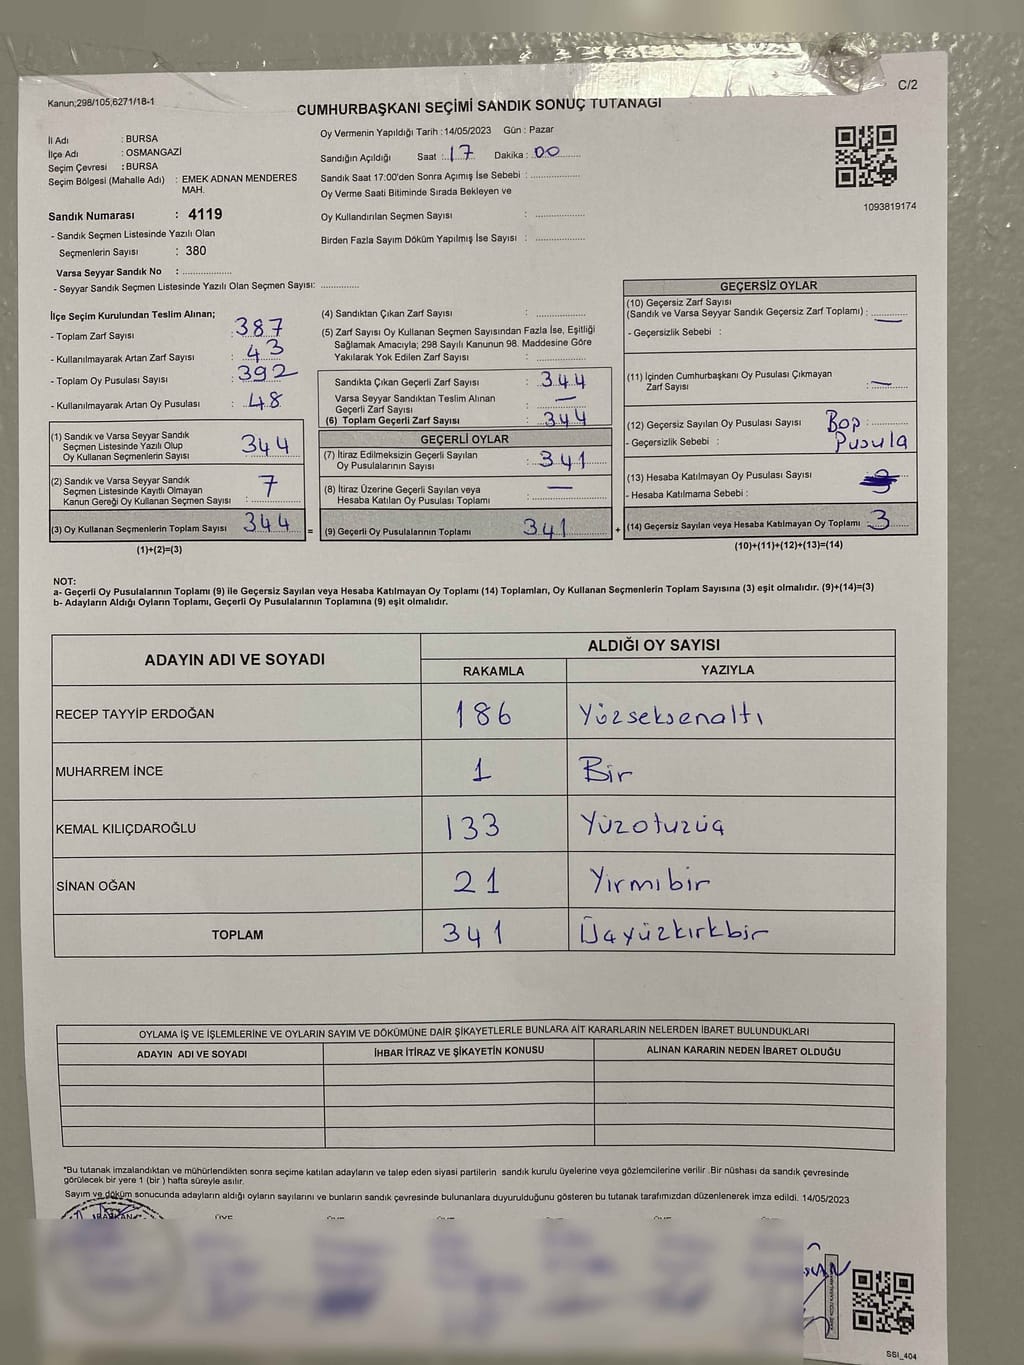 Kanun;298/105,6271/18-1
C/2
CUMHURBAŞKANI SEÇİMİ SANDIK SONUÇ TUTANAĞI
İl Adı : BURSA
İlçe Adı : OSMANGAZİ
Seçim Çevresi : BURSA
Seçim Bölgesi (Mahalle Adı) : EMEK ADNAN MENDERES
MAH.
Sandık Numarası : 4119
- Sandık Seçmen Listesinde Yazılı Olan
Seçmenlerin Sayısı : 380
Varsa Seyyar Sandık No : ..................
- Seyyar Sandık Seçmen Listesinde Yazılı Olan Seçmen Sayısı: ..............
Oy Vermenin Yapıldığı Tarih : 14/05/2023 Gün : Pazar
Sandığın Açıldığı Saat : 17 Dakika : 00
Sandık Saat 17:00'den Sonra Açımış İse Sebebi : ..................
Oy Verme Saati Bitiminde Sırada Bekleyen ve
Oy Kullandırılan Seçmen Sayısı : ..................
Birden Fazla Sayım Döküm Yapılmış İse Sayısı : ..................
1093819174
İlçe Seçim Kurulundan Teslim Alınan;
- Toplam Zarf Sayısı : 387
- Kullanılmayarak Artan Zarf Sayısı : 43
- Toplam Oy Pusulası Sayısı : 392
- Kullanılmayarak Artan Oy Pusulası : 48
(1) Sandık ve Varsa Seyyar Sandık
Seçmen Listesinde Yazılı Olup
Oy Kullanan Seçmenlerin Sayısı 344
(2) Sandık ve Varsa Seyyar Sandık
Seçmen Listesinde Kayıtlı Olmayan
Kanun Gereği Oy Kullanan Seçmen Sayısı : 7
(3) Oy Kullanan Seçmenlerin Toplam Sayısı 344 =
(1)+(2)=(3)
(4) Sandıktan Çıkan Zarf Sayısı : ..................
(5) Zarf Sayısı Oy Kullanan Seçmen Sayısından Fazla İse, Eşitliği
Sağlamak Amacıyla; 298 Sayılı Kanunun 98. Maddesine Göre
Yakılarak Yok Edilen Zarf Sayısı : ..................
Sandıkta Çıkan Geçerli Zarf Sayısı : 344
Varsa Seyyar Sandıktan Teslim Alınan
Geçerli Zarf Sayısı : —
(6) Toplam Geçerli Zarf Sayısı : 344
GEÇERLİ OYLAR
(7) İtiraz Edilmeksizin Geçerli Sayılan
Oy Pusulalarının Sayısı : 341
(8) İtiraz Üzerine Geçerli Sayılan veya
Hesaba Katılan Oy Pusulası Toplamı : —
(9) Geçerli Oy Pusulalarının Toplamı 341 +
GEÇERSİZ OYLAR
(10) Geçersiz Zarf Sayısı
(Sandık ve Varsa Seyyar Sandık Geçersiz Zarf Toplamı) : —
- Geçersizlik Sebebi :
(11) İçinden Cumhurbaşkanı Oy Pusulası Çıkmayan
Zarf Sayısı : —
(12) Geçersiz Sayılan Oy Pusulası Sayısı : Boş
- Geçersizlik Sebebi : Pusula
(13) Hesaba Katılmayan Oy Pusulası Sayısı :
- Hesaba Katılmama Sebebi :
(14) Geçersiz Sayılan veya Hesaba Katılmayan Oy Toplamı : 3
(10)+(11)+(12)+(13)=(14)
NOT:
a- Geçerli Oy Pusulalarının Toplamı (9) ile Geçersiz Sayılan veya Hesaba Katılmayan Oy Toplamı (14) Toplamları, Oy Kullanan Seçmenlerin Toplam Sayısına (3) eşit olmalıdır. (9)+(14)=(3)
b- Adayların Aldığı Oyların Toplamı, Geçerli Oy Pusulalarının Toplamına (9) eşit olmalıdır.
ADAYIN ADI VE SOYADI ALDIĞI OY SAYISI
RAKAMLA YAZIYLA
RECEP TAYYİP ERDOĞAN 186 Yüzseksenaltı
MUHARREM İNCE 1 Bir
KEMAL KILIÇDAROĞLU 133 Yüzotuzüç
SİNAN OĞAN 21 Yirmibir
TOPLAM 341 Üçyüzkırkbir
OYLAMA İŞ VE İŞLEMLERİNE VE OYLARIN SAYIM VE DÖKÜMÜNE DAİR ŞİKAYETLERLE BUNLARA AİT KARARLARIN NELERDEN İBARET BULUNDUKLARI
ADAYIN ADI VE SOYADI İHBAR İTİRAZ VE ŞİKAYETİN KONUSU ALINAN KARARIN NEDEN İBARET OLDUĞU
*Bu tutanak imzalandıktan ve mühürlendikten sonra seçime katılan adayların ve talep eden siyasi partilerin sandık kurulu üyelerine veya gözlemcilerine verilir .Bir nüshası da sandık çevresinde
görülecek bir yere 1 (bir ) hafta süreyle asılır.
Sayım ve döküm sonucunda adayların aldığı oyların sayılarını ve bunların sandık çevresinde bulunanlara duyurulduğunu gösteren bu tutanak tarafımızdan düzenlenerek imza edildi. 14/05/2023
BAŞKAN ÜYE
SSI_404